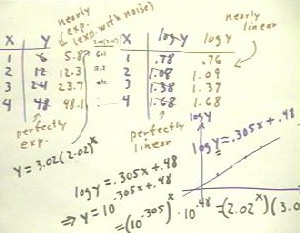 nearly
exp.
(exp. with noise)
nearly
linear
X Y X log Y log Y
1 6 5.8 1 .78 .76
2 12 12.3 2 1.08 1.09
3 24 23.7 3 1.38 1.37
4 48 48.1 4 1.68 1.68
perfectly
exp.
perfectly
linear
log Y
y = 3.02(2.02)^x
log y = .305x + .48
log y = .305x + .48
⇒ y = 10^.305x + .48
= (10^.305)^x · 10^.48 = (2.02^x)(3.0